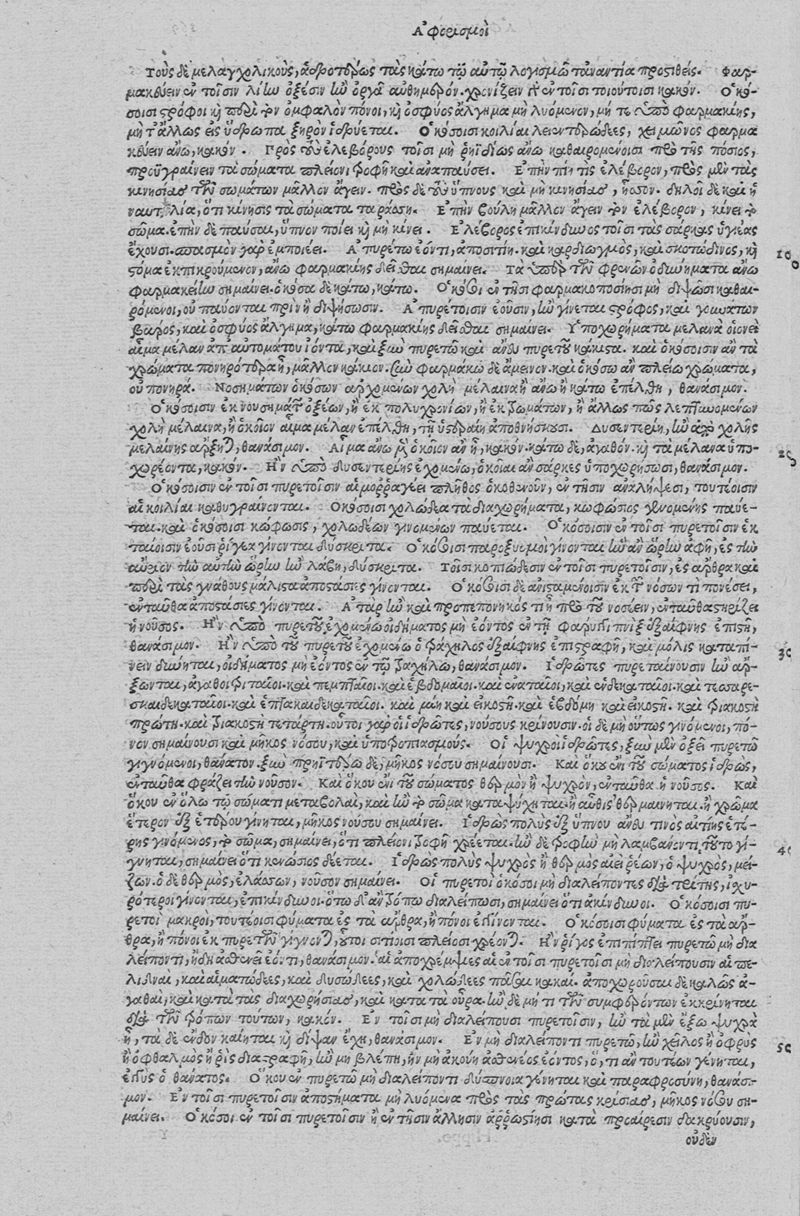 Ἀφορισμοὶ
Τοὺς δὲ μελαγχολικοὺς, ἁδροτέρως τὰς κάτω τῷ αὐτῷ λογισμῷ τἀναντία προστιθείς. Φαρ-
μακεύειν ἐν τοῖσιν λίην ὀξέσιν ἢν ὀργᾷ αὐθημερόν. χρονίζειν γὰρ ἐν τοῖσι τοιούτοισι κακόν. Ὁκό-
σοισι στρόφοι καὶ περὶ τὸν ὀμφαλὸν πόνοι, καὶ ὀσφύος ἄλγημα μὴ λυόμενον, μή τε ὑπὸ φαρμακίης,
μήτ' ἄλλως εἰς ὕδρωπα ξηρὸν ἱδρύεται. Ὁκόσοισι κοιλίαι λειεντεριώδεες, χειμῶνος φαρμα
κεύειν ἄνω, κακόν. Πρὸς τοὺς ἐλεβόρους τοῖσι μὴ ῥηϊδίως ἄνω καθαιρομένοισι πρὸ τῆς πόσιος,
προϋγραίνειν τὰ σώματα πλείονι τροφῇ καὶ ἀναπαύσει. Ἐπὴν πίῃ τὶς ἐλέβορον, πρὸς μὲν τὰς
κινήσιας τῶν σωμάτων μᾶλλον ἄγειν. πρὸς δὲ τοὺς ὕπνους καὶ μὴ κινήσιας, ἧσσον. δηλοῖ δὲ καὶ ἡ
ναυτιλία, ὅτι κίνησις τὰ σώματα ταράσσει. Ἐπὴν βούλῃ μᾶλλον ἄγειν τὸν ἐλέβορον, κίνει τὸ
σῶμα. ἐπὴν δὲ παῦσαι, ὕπνον ποίει καὶ μὴ κίνει. Ἐλέβορος ἐπικίνδυνος τοῖσι τὰς σάρκας ὑγιέας
ἔχουσι. σπασμὸν γὰρ ἐμποιέει. Ἀπυρέτῳ ἐόντι, ἀποσιτίη. καὶ καρδιωγμὸς, καὶ σκοτόδινος, καὶ
στόμα ἐκπικρούμενον, ἄνω φαρμακίης δεῖσθαι σημαίνει. Τὰ ὑπὲρ τῶν φρενῶν ὀδυνήματα ἄνω
φαρμακείην σημαίνει. ὁκόσα δὲ κάτω, κάτω. Ὁκόσοι ἐν τῇσι φαρμακοποσίῃσι μὴ διψῶσι καθαι-
ρόμενοι, οὐ παύονται πρὶν ἢ διψήσωσιν. Ἀπυρέτοισιν ἐοῦσιν, ἢν γίνεται στρόφος, καὶ γουνάτων
βάρος, καὶ ὀσφύος ἄλγημα, κάτω φαρμακίης δεῖσθαι σημαίνει. Ὑποχωρήματα μέλανα ὁκοῖον
αἷμα μέλαν ἀπ' αὐτομάτου ἰόντα, καὶ ξὺν πυρετῷ καὶ ἄνευ πυρετοῦ κάκιστα. καὶ ὁκόσοισιν ἂν τὰ
χρώματα πονηρότερα ᾖ, μᾶλλον κάκιον. ξὺν φαρμάκῳ δὲ ἄμεινον. καὶ ὁκόσῳ ἂν πλείω χρώματα,
οὐ πονηρά. Νοσημάτων ὁκόσων ἀρχομένων χολὴ μέλαινα ἢ ἄνω ἢ κάτω ἐπέλθῃ, θανάσιμον.
Ὁκόσοισιν ἐκ νουσημάτων ὀξέων, ἢ ἐκ πολυχρονίων, ἢ ἐκ τρωμάτων, ἢ ἄλλως πῶς λεπτυνομένων
χολὴ μέλαινα, ἢ ὁκοῖον αἷμα μέλαν ἐπέλθῃ, τῇ ὑστεραίῃ ἀποθνήσκουσι. Δυσεντερίη, ἢν ἀπὸ χολῆς
μελαίνης ἄρξηται, θανάσιμον. Αἷμα ἄνω μὲν ὁκοῖον ἂν ᾖ, κακόν. κάτω δὲ, ἀγαθόν. καὶ τὰ μέλανα ὑπο-
χωρέοντα, κακόν. Ἢν ὑπὸ δυσεντερίης ἐχομένῳ, ὁκοῖαι ἂν σάρκες ὑποχωρήσωσι, θανάσιμον.
Ὁκόσοισιν ἐν τοῖσι πυρετοῖσιν αἱμορραγέει πλῆθος ὁκοθενοῦν, ἐν τῇσιν ἀναλήψεσι, τουτέοισιν
αἱ κοιλίαι καθυγραίνονται. Ὁκόσοισι χολώδεα τὰ διαχωρήματα, κωφώσιος γενομένης παύε-
ται. καὶ ὁκόσοισι κώφωσις, χολωδέων γινομένων παύεται. Ὁκόσοισιν ἐν τοῖσι πυρετοῖσιν ἑκ
ταίοισιν ἐοῦσι ῥίγεα γίνονται δύσκριτα. Ὁκόσοισι παροξυσμοὶ γίνονται ἢν ἂν ὥρην ἀφῇ, ἐς τὴν
αὔριον τὴν αὐτὴν ὥρην ἢν λάβῃ, δύσκριτα. Τοῖσι κοπιώδεσιν ἐν τοῖσι πυρετοῖσιν, ἐς ἄρθρα καὶ
περὶ τὰς γνάθους μάλιστα ἀποστάσιες γίνονται. Ὁκόσοισι δὲ ἀνισταμένοισιν ἐκ τῶν νόσων τὶ πονέσει,
ἐνταῦθα ἀποστάσιες γίνονται. Ἀτὰρ ἢν καὶ προπεπονηκός τι ᾖ πρὸ τοῦ νοσέειν, ἐνταῦθα στηρίζει
ἡ νοῦσος. Ἢν ὑπὸ πυρετοῦ ἐχομένῳ οἰδήματος μὴ ἐόντος ἐν τῇ φάρυγγι πνὶξ ἐξαίφνης ἐπιστῇ,
θανάσιμον. Ἢν ὑπὸ τοῦ πυρετοῦ ἐχομένῳ ὁ τράχηλος ἐξαίφνης ἐπιστραφῇ, καὶ μόλις καταπί-
νειν δύνηται, οἰδήματος μὴ ἐόντος ἐν τῷ τραχήλῳ, θανάσιμον. Ἱδρῶτες πυρεταίνουσιν ἢν ἄρ-
ξωνται, ἀγαθοὶ τριταῖοι. καὶ πεμπταῖοι. καὶ ἑβδομαῖοι. καὶ ἐναταῖοι, καὶ ἑνδεκαταῖοι. καὶ τεσσαρε-
σκαιδεκαταῖοι. καὶ ἑπτακαιδεκαταῖοι. καὶ μιῇ καὶ εἰκοστῇ. καὶ ἑβδόμῃ καὶ εἰκοστῇ. καὶ τριακοστῇ
πρώτῃ. καὶ τριακοστῇ τετάρτῃ. οὗτοι γὰρ οἱ ἱδρῶτες, νούσους κρίνουσιν. οἱ δὲ μὴ οὕτως γινόμενοι, πό-
νον σημαίνουσι καὶ μῆκος νόσου, καὶ ὑποτροπιασμούς. Οἱ ψυχροὶ ἱδρῶτες, ξὺν μὲν ὀξεῖ πυρετῷ
γιγνόμενοι, θάνατον. ξὺν πρηϋτέρῳ δὲ, μῆκος νόσου σημαίνουσι. Καὶ ὅκου ἔνι τοῦ σώματος ἱδρὼς,
ἐνταῦθα φράζει τὴν νοῦσον. Καὶ ὅκου ἔνι τοῦ σώματος θερμὸν ἢ ψυχρὸν, ἐνταῦθα ἡ νοῦσος. Καὶ
ὅκου ἐν ὅλῳ τῷ σώματι μεταβολαὶ, καὶ ἢν τὸ σῶμα καταψύχηται. ἢ αὖθις θερμαίνηται. ἢ χρῶμα
ἕτερον ἐξ ἑτέρου γίνηται, μῆκος νούσου σημαίνει. Ἱδρὼς πολὺς ἐξ ὕπνου ἄνευ τινὸς αἰτίης ἑτέ-
ρης γινόμενος, τὸ σῶμα, σημαίνει, ὅτι πλείονι τροφῇ χρέεται. ἢν δὲ τροφὴν μὴ λαμβάνοντι τοῦτο γί-
νηται, σημαίνει ὅτι κενώσιος δέεται. Ἱδρὼς πολὺς ψυχρὸς ἢ θερμὸς αἰεὶ ῥέων, ὁ ψυχρὸς, μεί-
ζων. ὁ δὲ θερμὸς, ἐλάσσων, νοῦσον σημαίνει. Οἱ πυρετοὶ ὁκόσοι μὴ διαλείποντες διὰ τρίτης, ἰσχυ-
ρότεροι γίνονται, ἐπικίνδυνοι. ὅτῳ δ' ἂν τρόπῳ διαλείπωσι, σημαίνει ὅτι ἀκίνδυνοι. Ὁκόσοισι πυ-
ρετοὶ μακροὶ, τουτέοισι φύματα ἐς τὰ ἄρθρα, ἢ πόνοι ἐγγίνονται. Ὁκόσοισι φύματα ἐς τὰ ἄρ-
θρα, ἢ πόνοι ἐκ πυρετῶν γίγνονται, οὗτοι σιτίοισι πλείοσι χρέονται. Ἢν ῥῖγος ἐπιπίπτει πυρετῷ μὴ δια
λείποντι, ἤδη ἀσθενεῖ ἐόντι, θανάσιμον. αἱ ἀποχρέμψιες αἱ ἐν τοῖσι πυρετοῖσι μὴ διαλείπουσιν αἱ πε-
λιδναὶ, καὶ αἱματώδεες, καὶ δυσώδεες, καὶ χολώδεες πᾶσαι κακαί. ἀποχωροῦσαι δὲ καλῶς ἀ-
γαθαὶ, καὶ κατὰ τὰς διαχωρήσιας, καὶ κατὰ τὰ οὖρα. ἢν δὲ μή τι τῶν συμφερόντων ἐκκρίνηται
διὰ τῶν τρόπων τούτων, κακόν. Ἐν τοῖσι μὴ διαλείπουσι πυρετοῖσιν, ἢν τὰ μὲν ἔξω ψυχρὰ
ᾖ, τὰ δὲ ἔνδον καίηται καὶ δίψαν ἔχῃ, θανάσιμον. Ἐν μὴ διαλείποντι πυρετῷ, ἢν χεῖλος ἢ ὀφρὺς
ἢ ὀφθαλμὸς ἢ ῥὶς διαστραφῇ, ἢν μὴ βλέπῃ, ἢν μὴ ἀκούῃ ἀσθενέος ἐόντος, ὅ, τι ἂν τουτέων γένηται,
ἐγγὺς ὁ θάνατος. Ὅκου ἐν πυρετῷ μὴ διαλείποντι δύσπνοια γένηται καὶ παραφροσύνη, θανάσι-
μον. Ἐν τοῖσι πυρετοῖσιν ἀποστήματα μὴ λυόμενα πρὸς τὰς πρώτας κρίσιας, μῆκος νόσου ση-
μαίνει. Ὁκόσοι ἐν τοῖσι πυρετοῖσιν ἢ ἐν τῇσιν ἄλλῃσιν ἀρρωστίῃσι κατὰ προαίρεσιν δακρύουσιν,
οὐδὲν